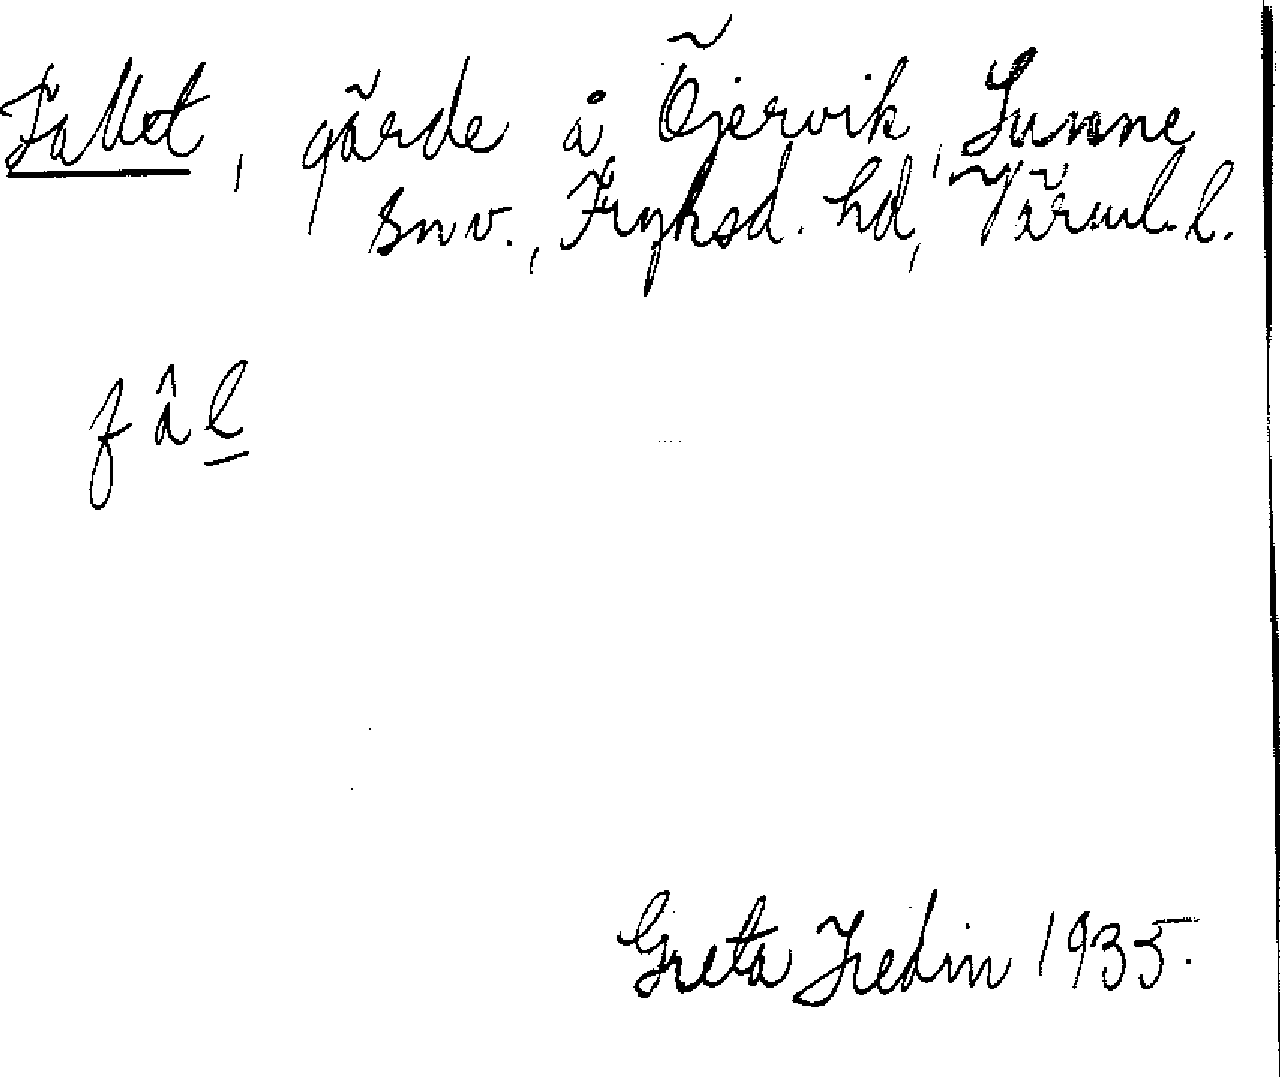 Fallet, gärde å Öjervik, Sunne
snv., Fryksd. hd, Värml. l.
fâl̲
Greta Hedin 1935.